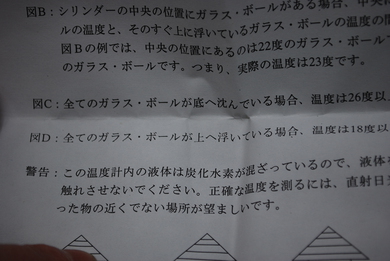 図B：シリンダーの中央の位置にガラス・ボールがある場合、中央に
ルの温度と、そのすぐ上に浮いているガラス・ボールの温度の間
図Bの例では、中央の位置にあるのは22度のガラス・ボール
のガラス・ボールです。つまり、実際の温度は23度です。
図C：全てのガラス・ボールが底へ沈んでいる場合、温度は26度以
図D：全てのガラス・ボールが上へ浮いている場合、温度は18度以
警告：この温度計内の液体は炭化水素が混ざっているので、液体
触れさせないでください。正確な温度を測るには、直射日
った物の近くでない場所が望ましいです。